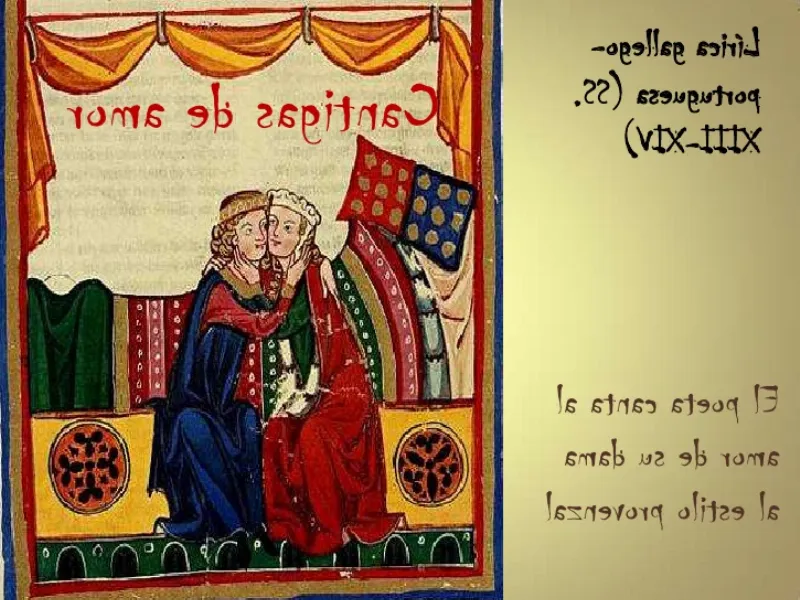 Cantigas de amor
Lírica gallego-
portuguesa (SS.
XIII-XIV)
El poeta canta al
amor de su dama
al estilo provenzal